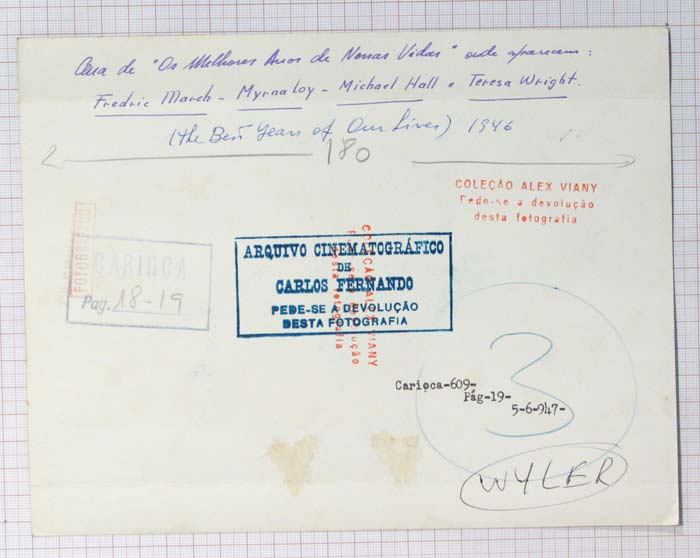 Cena de "Os Melhores Anos de Nossas Vidas" onde aparecem:
Fredric March - Myrna Loy - Michael Hall e Teresa Wright.
(The Best Years of Our Lives) 1946
180
COLEÇÃO ALEX VIANY
Pede-se a devolução
desta fotografia
CARIOCA
Pag. 18-19
FOTOGRAFIA
ARQUIVO CINEMATOGRÁFICO
DE
CARLOS FERNANDO
PEDE-SE A DEVOLUÇÃO
DESTA FOTOGRAFIA
COLEÇÃO ALEX VIANY
Pede-se a devolução
desta fotografia
3
Carioca-609-
Pág-19-
5-6-947-
WYLER